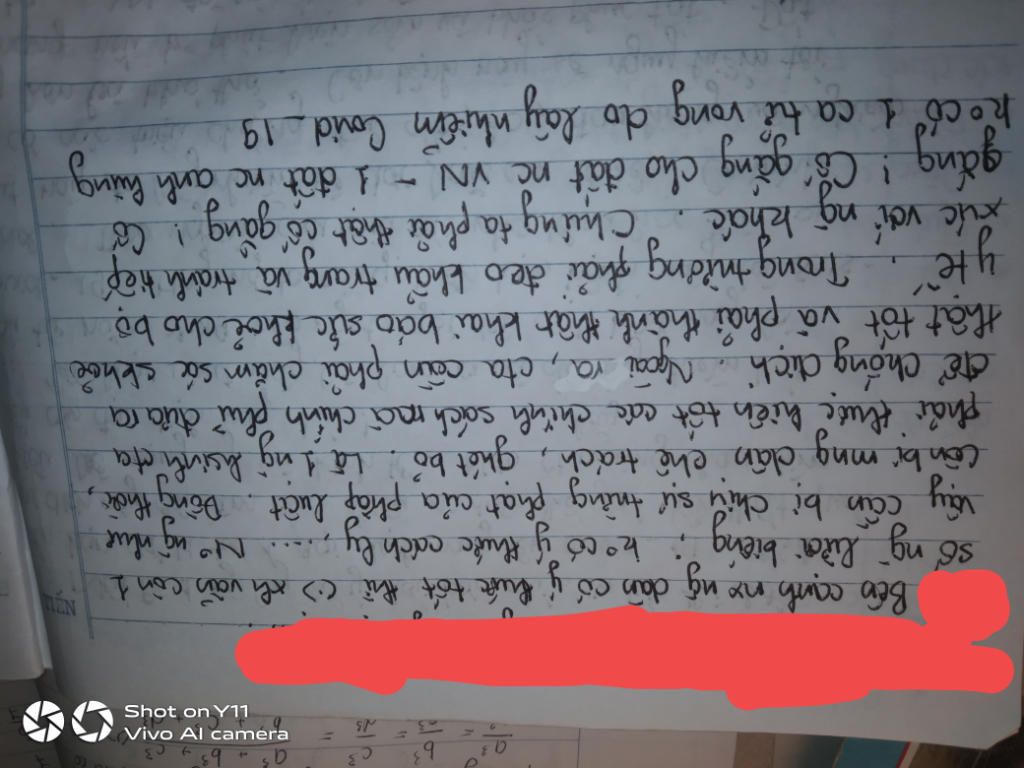 Bên cạnh nx ng dân có ý thức tốt thì (:) xh vẫn còn 1
số ng lười biếng, kº có ý thức cách ly, .... Nº ng như
vậy cần bị chịu sự trừng phạt của pháp luật. Đồng thời,
còn bị mng dân chê trách, ghét bỏ. Là 1 ng hsinh cta
phải thực hiện tốt các chính sách mà chính phủ đưa ra
để chống dịch. Ngoài ra, cta cần phải chăm só skhoẻ
thật tốt và phải thành thật khai báo sức khoẻ cho bộ
y tế. Trong trường phải đeo khẩu trang và tránh tiếp
xúc với ng khác. Chúng ta phải thật cố gắng! Cố
gắng! Cố gắng cho đất nc VN - 1 đất nc anh hùng
kº có 1 ca tử vong do lây nhiễm Covid_19
NĂM
Shot on Y11
Vivo AI camera